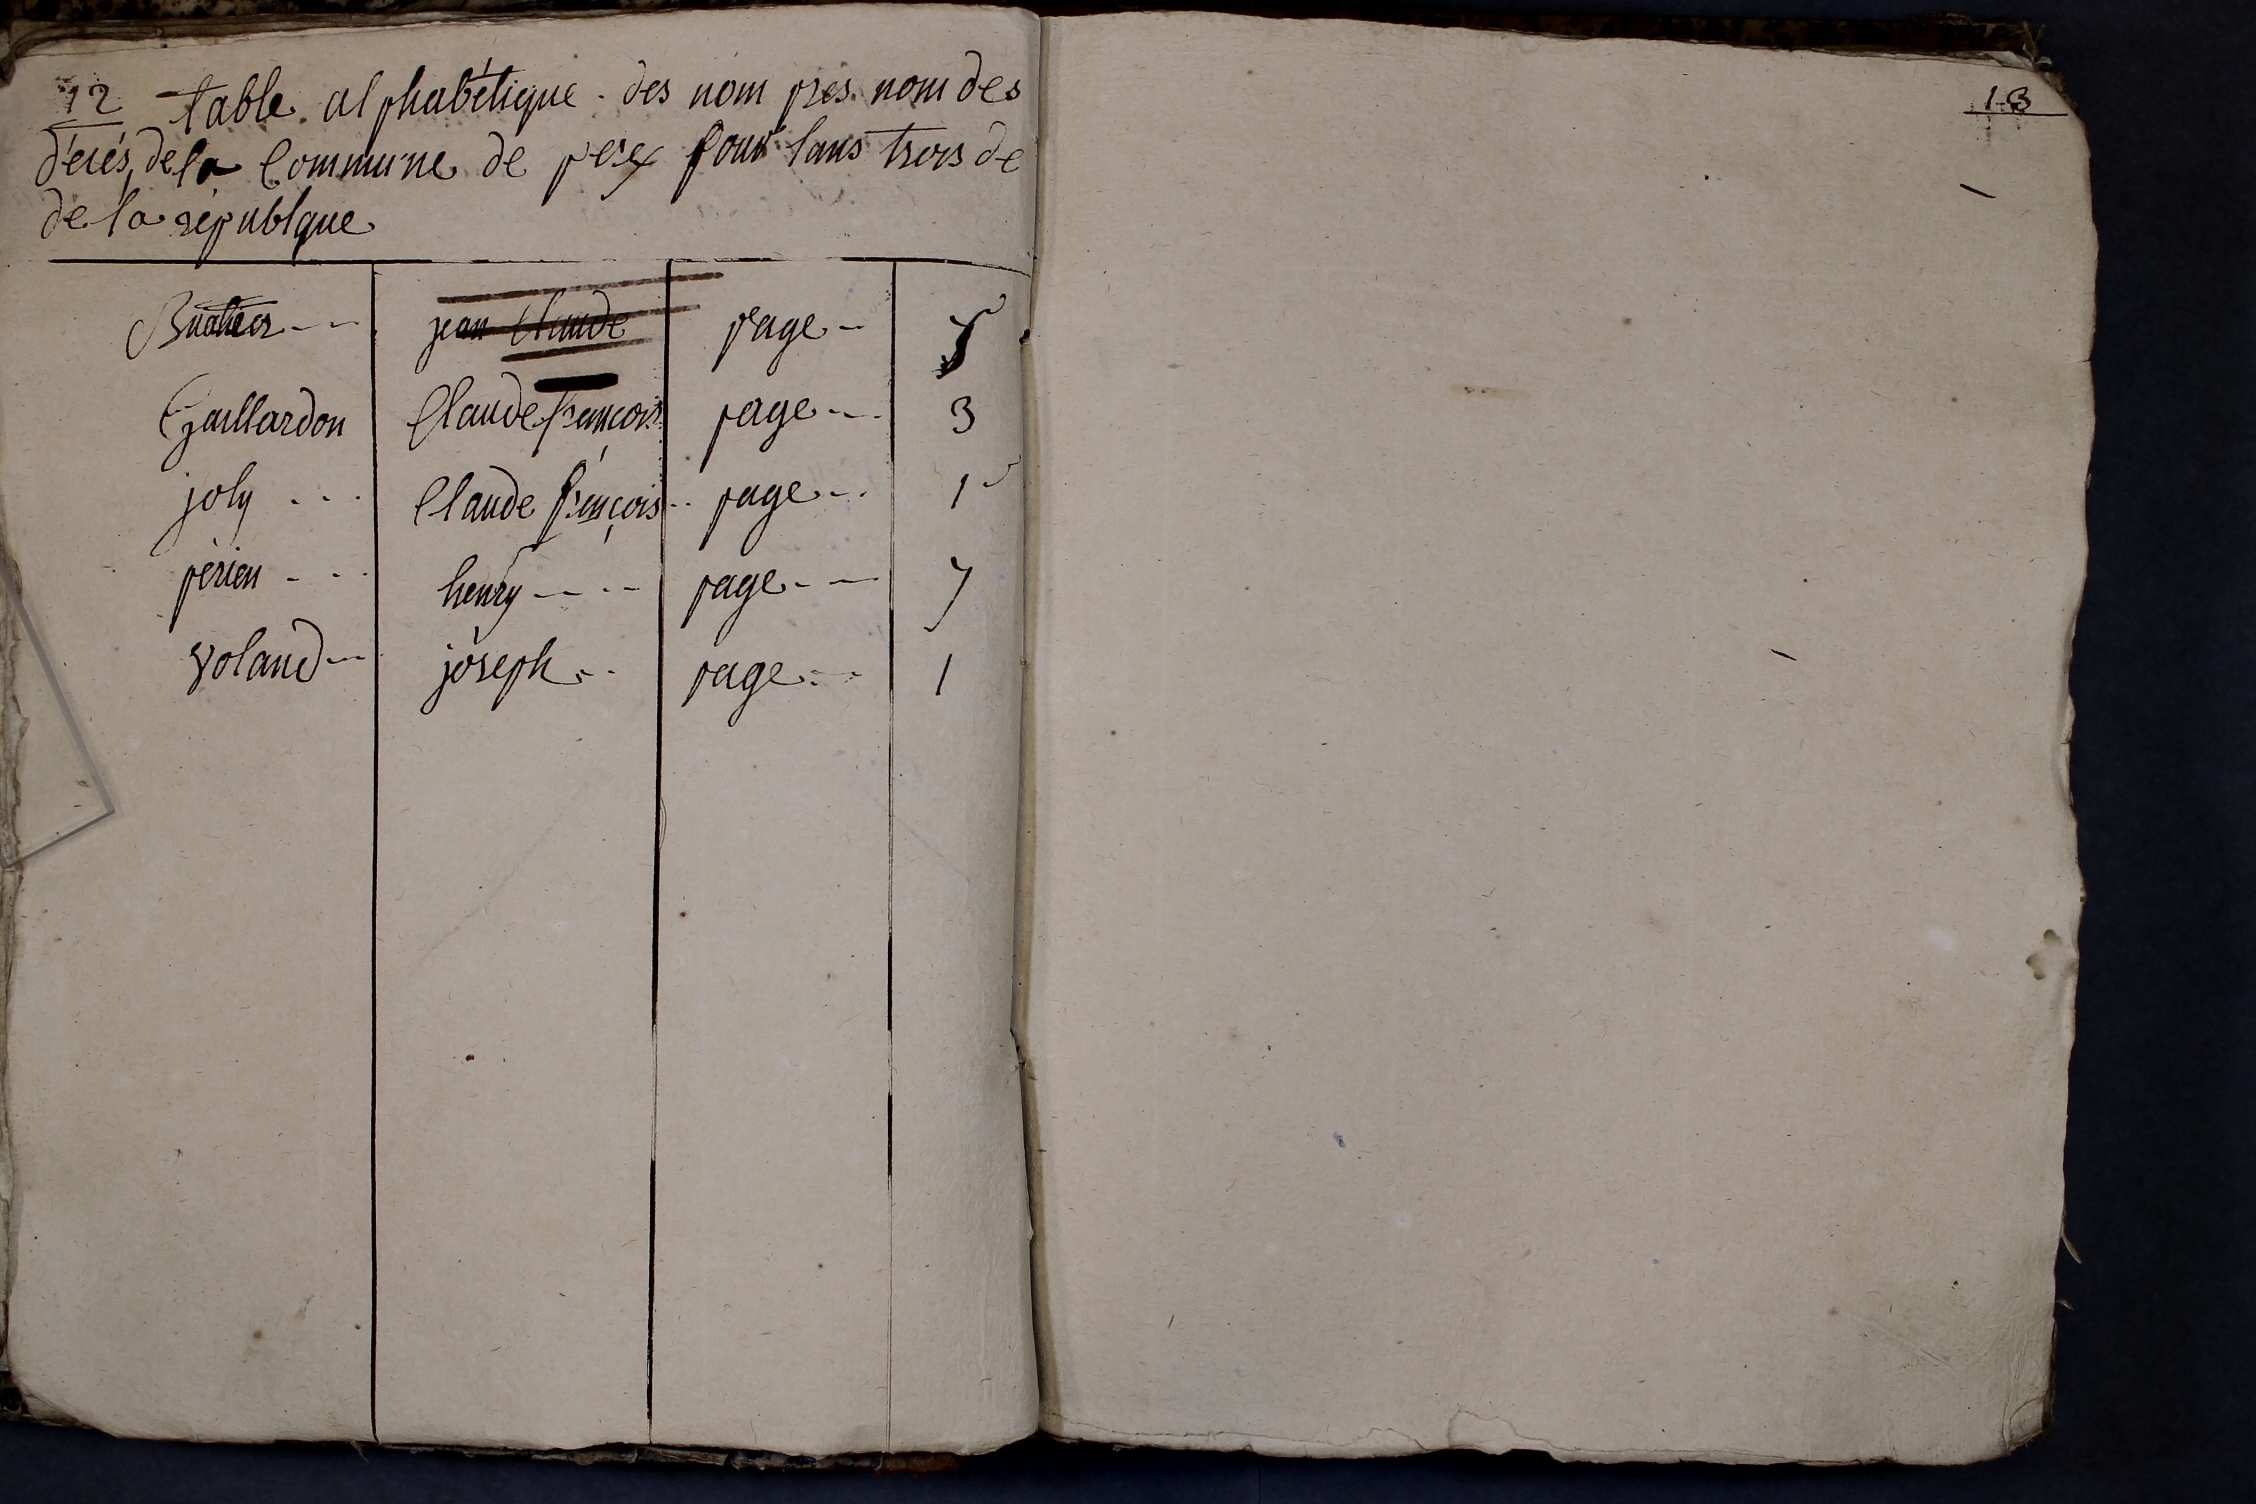 12 table alphabétique des nom pres nom des
décés de la Commune de pesex pour lans trois de
de la républque
Buatier -- jean Claude page - 5
Gaillardon Claude françois page -- 3
joly --- Claude françois -- page -- 1
périen --- henry ---- page -- 7
voland -- joseph -- page -- 1
13